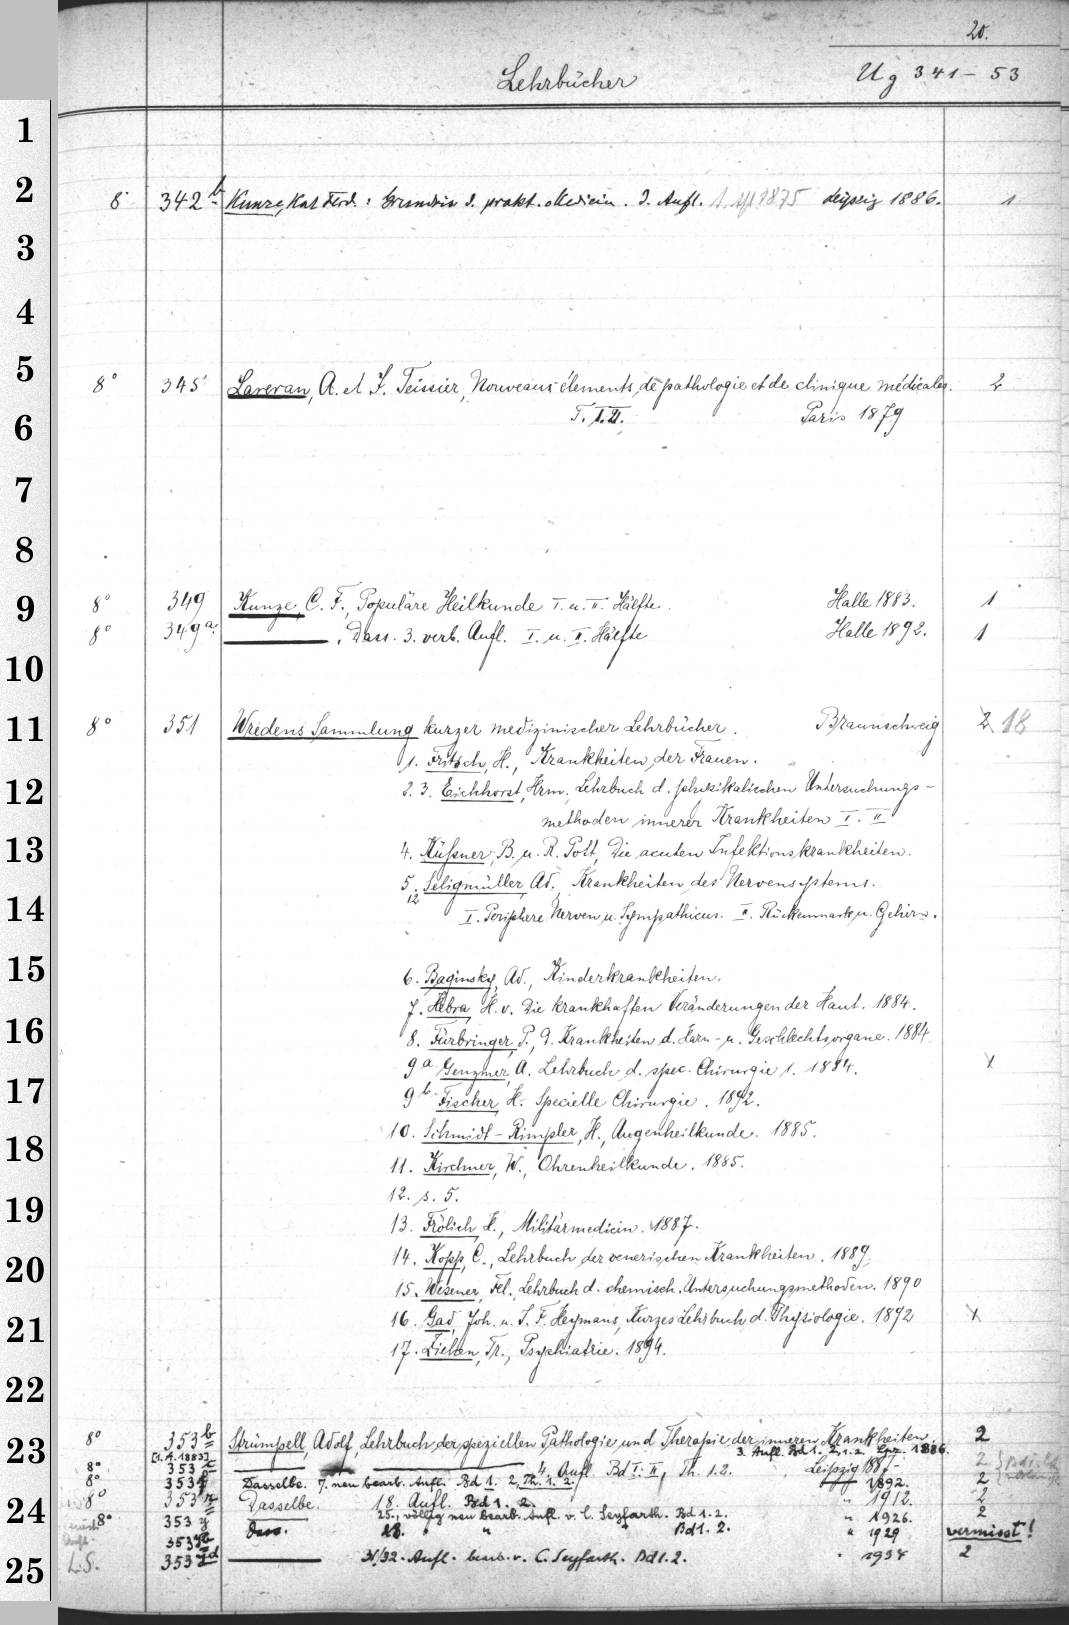 20.
Lehrbücher Ug 341-53
1
2
8° 342b Kunze, Karl Ferd.: Grundriss d. prakt. Medicin. 3. Aufl. 1. Afl 1875 Leipzig 1886. 1
3
4
5
8° 345 Laveran, A. et J. Teissier, Nouveaux élements de pathologie et de clinique médicales. 2
T. I. II. Paris 1879
6
7
8
9
8° 349 Kunze, C. F., Populäre Heilkunde I. u. II. Hälfte. Halle 1883. 1
8° 349a. , Dass. 3. verb. Aufl. I. u. II. Hälfte Halle 1892. 1
10
11
8° 351 Wredens Sammlung kurzer medizinischer Lehrbücher. Braunschweig 2 18
1. Fritsch, H., Krankheiten der Frauen.
12
2. 3. Eichhorst, Hrm., Lehrbuch d. physikalischen Untersuchungs-
methoden innerer Krankheiten I. II
13
4. Küßner, B. u. R. Pott, Die acuten Infektionskrankheiten.
5. 12 Seligmüller, Ad. Krankheiten des Nervensystems.
14
I. Periphere Nerven u. Sympathicus. II. Rückenmark u. Gehirn.
15
6. Baginsky, Ad., Kinderkrankheiten.
7. Hebra, H. v. Die krankhaften Veränderungen der Haut. 1884.
16
8. Fürbringer, P., D. Krankheiten d. Harn- u. Geschlechtsorgane. 1884
9a. Genzmer, A. Lehrbuch d. spec. Chirurgie 1. 1884. x
17
9b. Fischer, H. Specielle Chirurgie. 1892.
10. Schmidt-Rimpler, H., Augenheilkunde. 1885.
18
11. Kirchner, W., Ohrenheilkunde. 1885.
12. s. 5.
19
13. Frölich, H., Militärmedicin. 1887.
14. Kopp, C., Lehrbuch der venerischen Krankheiten. 1889.
20
15. Wesener, Fel., Lehrbuch d. chemisch. Untersuchungsmethoden. 1890
16. Gad, Joh. u. J. F. Heymans, Kurzes Lehrbuch d. Physiologie. 1892 x
21
17. Ziehen, Th., Psychiatrie. 1894.
22
23
8° 353b Strümpell, Adolf, Lehrbuch der speziellen Pathologie und Therapie der inneren Krankheiten. 2
[1. A. 1883] 3. Aufl. Bd 1. 2,1.2 Lpz. 1886.
8° 353c 4. Aufl. Bd I. II, Th. 1.2. Leipzig 1887- 2
8° 353f Dasselbe. 7. neu bearb. Aufl. Bd 1. 2, Th. 1. 2. 1892. 2
24
8° 353r Dasselbe. 18. Aufl. Bd 1. 2. " 1912. 2
8° 353y 25., völlig neu bearb. Aufl. v. C. Seyfarth. Bd 1. 2. " 1926. 2
Dass. 28. " " " Bd 1. 2. " 1929 vermisst!
25
L.S. 353 31/32. Aufl. bearb. v. C. Seyfarth. Bd 1. 2. " 1934 2